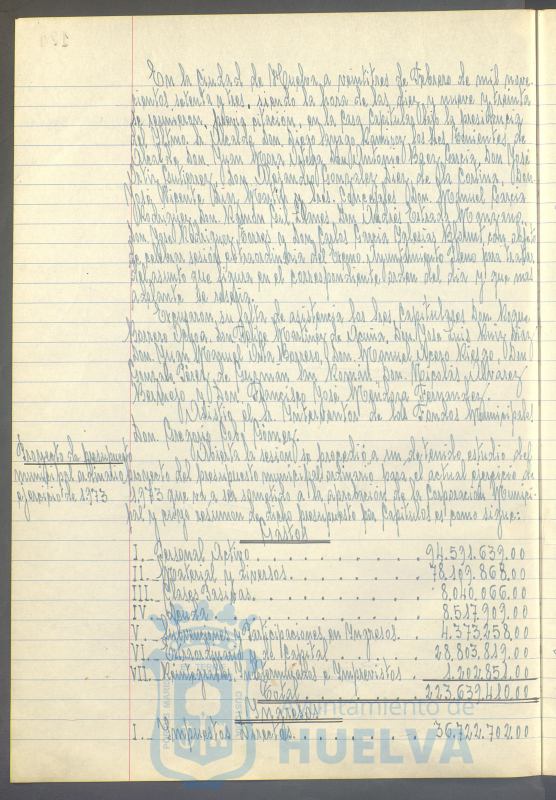 En la Ciudad de Huelva a veintitres de Febrero de mil nove-
cientos setenta y tres, siendo la hora de las diez y nueve y treinta
se reunieron, previa citación, en la Casa Capitular bajo la presidencia
del Iltmo. Sr. Alcalde Don Diego Ramírez los Sres. Tenientes de
Alcalde Don Juan Mora Don Antonio Baez García, Don José
Ortiz Gutierrez, Don Alejandro Gonzalez Diez de la Cortina, Don
José Vicente Diaz y Sres. Concejales Don Manuel García
Rodriguez, Don Ramón Gil Don Andrés Estrada Manzano,
Don José Rodriguez Torres y Don Carlos García Iglesias con objeto
de celebrar sesión extraordinaria del Excmo. Ayuntamiento Pleno para tratar
del asunto que figura en el correspondiente orden del día y que mas
adelante se reseña.
Excusaron su falta de asistencia los Sres. Capitulares Don Roque
Barrero Ochoa, Don Felipe Martinez de Acuña, Don José Luis Ruiz Diaz,
Don Juan Manuel Barrero, Don Manuel Riesgo, Don
Gonzalo Pérez de Guzman San Roman, Don Nicolás Alvarez
y Don Francisco José Mendoza Fernandez.
Asistió el Sr. Interventor de los Fondos Municipales
Don Gregorio Gomez.
Proyecto de presupuesto
municipal ordinario
ejercicio de 1.973
Abierta la sesión, se procedio a un detenido estudio del
proyecto del presupuesto municipal ordinario para el actual ejercicio de
1.973 que va a ser sometido a la aprobación de la Corporación Munici-
pal y cuyo resumen de dicho presupuesto por Capitulos es como sigue:
Gastos
I. - Personal Activo 94.591.639.00
II. - Material y diversos 78.109.868.00
III. - Clases Pasivas 8.040.066.00
IV. - Deuda 8.517.909.00
V. - Subvenciones y Participaciones en Ingresos 4.373.258.00
VI. - Extraordinarios y de Capital 28.803.819.00
VII. - Reintegrables, indeterminados e Imprevistos 1.202.851.00
Total 223.639.410.00
Ingresos
I. - Impuestos directos 36.722.702.00
Ayuntamiento de
HUELVA